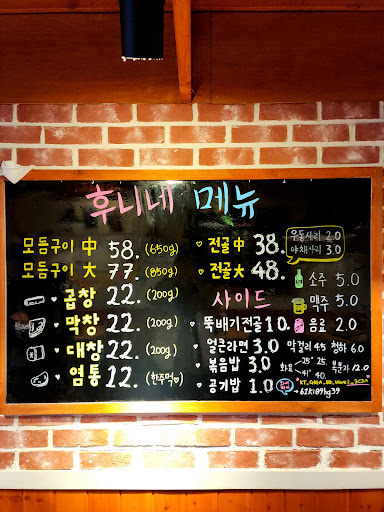 후니네 메뉴
모듬구이 中 58. (650g)
모듬구이 大 77. (850g)
곱창 22. (200g)
막창 22. (200g)
대창 22. (200g)
염통 12. (한주먹)
전골 中 38.
전골 大 48.
우동사리 2.0
야채사리 3.0
사이드
뚝배기전골 10.
얼큰라면 3.0
볶음밥 3.0
공기밥 1.0
소주 5.0
맥주 5.0
음료 2.0
막걸리 4.5 청하 6.0
화요 25° 25
41° 40
복분자 12.0
61k189hg39